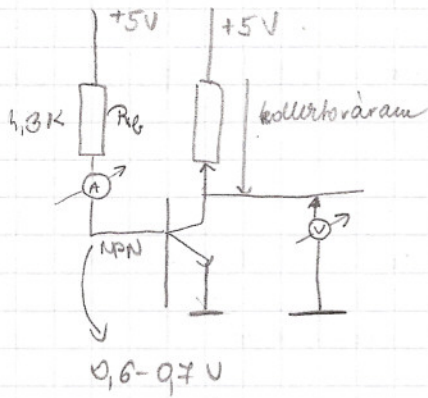 +5V
+5V
4,3K
kollektoráram
A
V
NPN
0,6-0,7 V